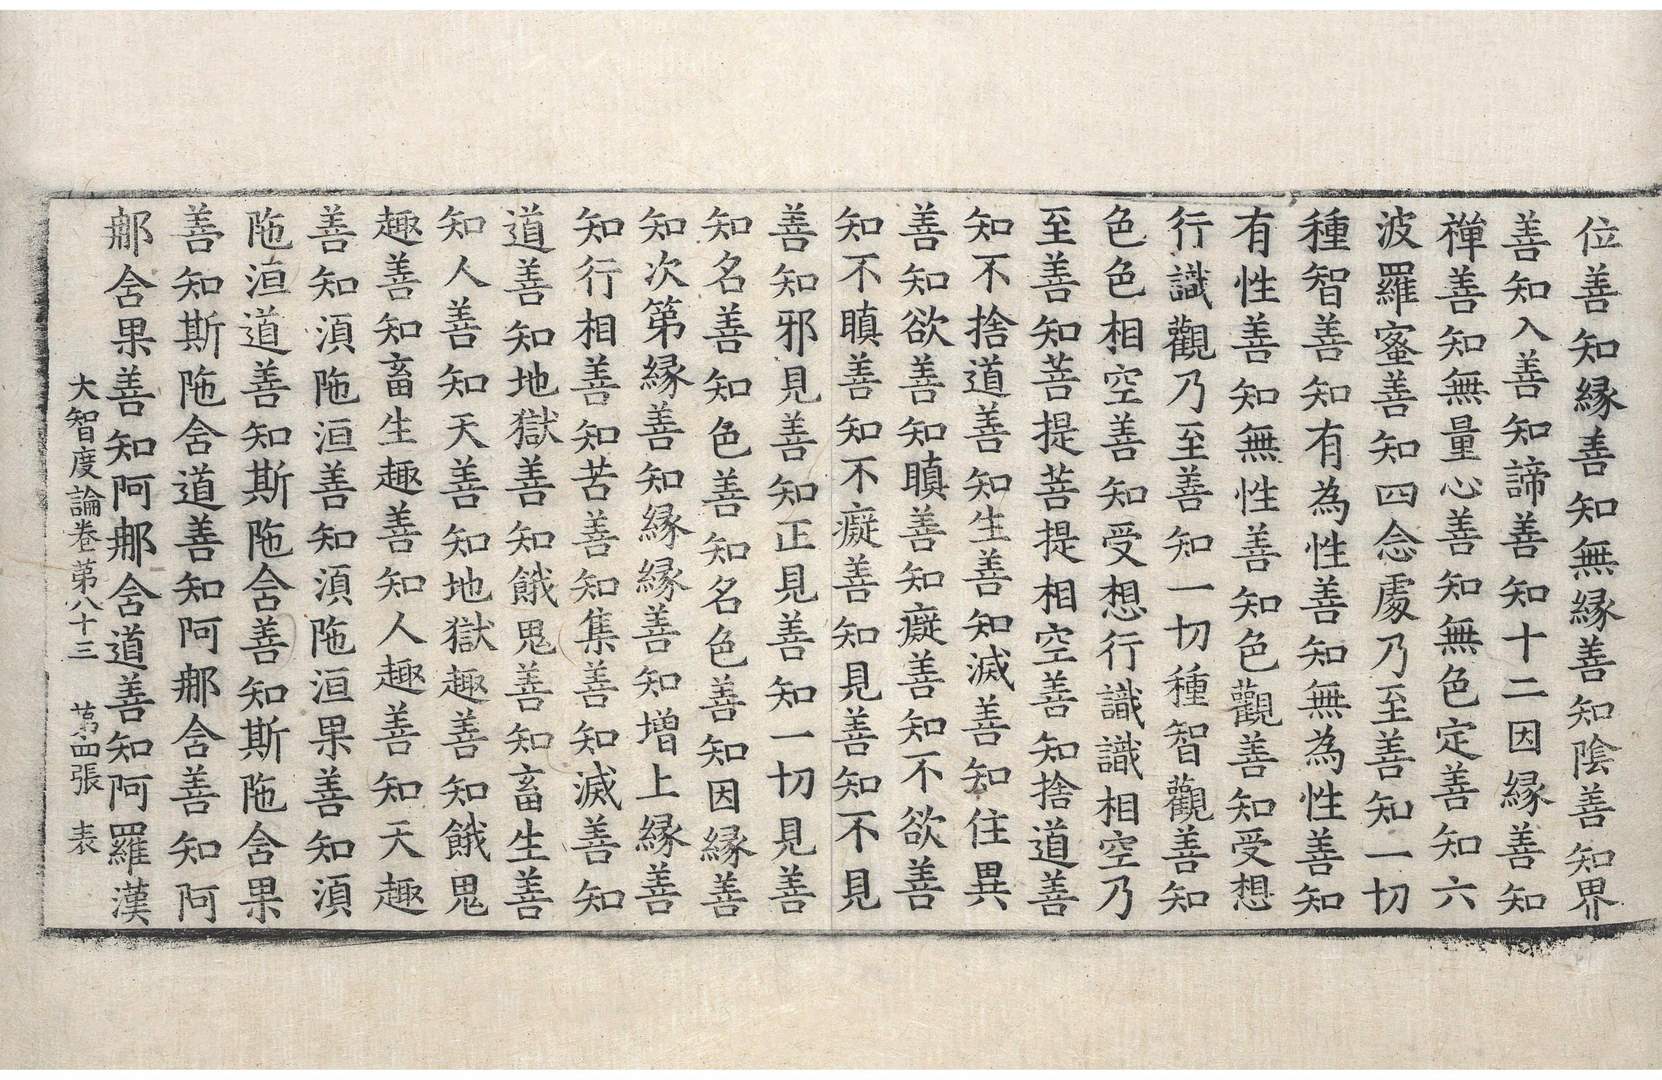 位善知縁善知無縁善知陰善知界
善知入善知諦善知十二因縁善知
禪善知無量心善知無色定善知六
波羅蜜善知四念處乃至善知一切
種智善知有為性善知無為性善知
有性善知無性善知色觀善知受想
行識觀乃至善知一切種智觀善知
色色相空善知受想行識識相空乃
至善知菩提菩提相空善知捨道善
知不捨道善知生善知滅善知住異
善知欲善知瞋善知癡善知不欲善
知不瞋善知不癡善知見善知不見
善知邪見善知正見善知一切見善
知名善知色善知名色善知因縁善
知次第縁善知縁縁善知增上縁善
知行相善知苦善知集善知滅善知
道善知地獄善知餓鬼善知畜生善
知人善知天善知地獄趣善知餓鬼
趣善知畜生趣善知人趣善知天趣
善知須陁洹善知須陁洹果善知須
陁洹道善知斯陁含善知斯陁含果
善知斯陁含道善知阿那含善知阿
那含果善知阿那含道善知阿羅漢
大智度論卷第八十三 第四張 表